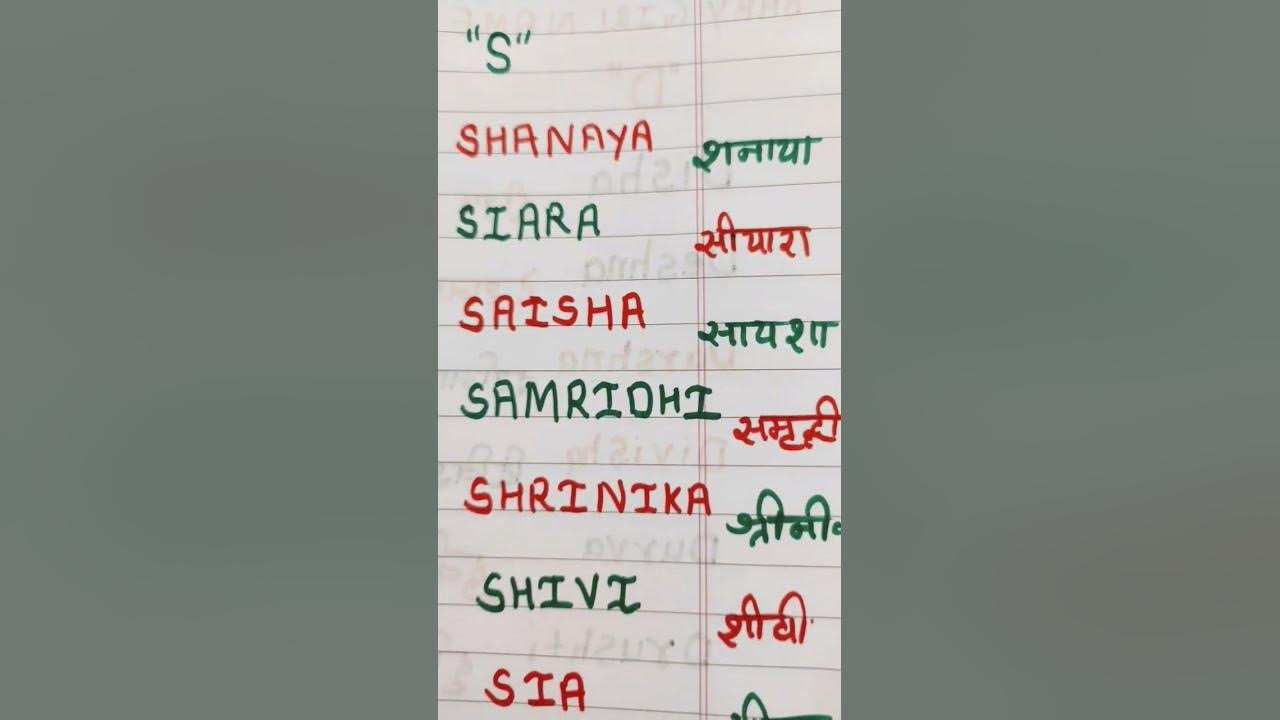 "S"
SHANAYA शनाया
SIARA सीयारा
SAISHA सायशा
SAMRIDHI समृद्धी
SHRINIKA
SHIVI शीवी
SIA